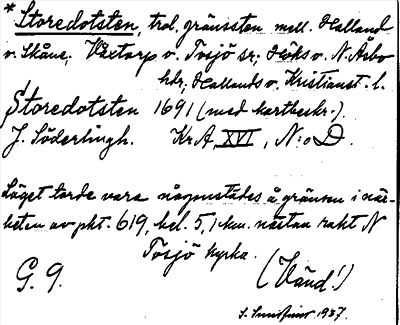 * Storedotsten, trol. gränssten mell. Halland
v. Skåne; Våxtorp v. Tosjö sr; Höks v. N. Åsbo
hdr; Hallands v. Kristianst. l.
Storedotsten 1691 (med kartbeskr.).
J. Söderlingh. Kr. A, XVI, N:o D.
Läget torde vara någonstädes å gränsen i när-
heten av pkt. 619, bel. 5,1 km. nästan rakt N
Tosjö kyrka.
G. 9. (Vänd!)
1937.